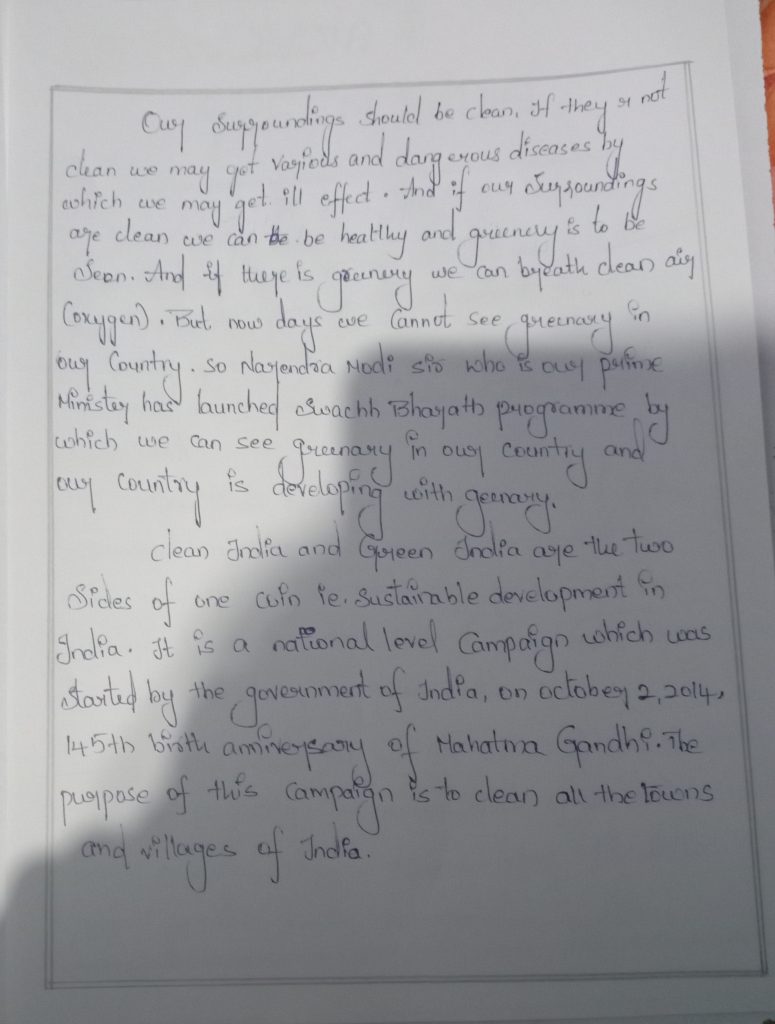 Our Surroundings should be clean. If they r not
clean we may get various and dangerous diseases by
which we may get ill effect. And if our Surroundings
are clean we can be be healthy and greenery is to be
Seen. And if there is greenery we can breath clean air
(oxygen). But now days we Cannot see greenary in
our Country. So Narendra Modi sir who is our prime
Minister has launched Swachh Bharath programme by
which we can see greenary in our Country and
our Country is developing with geenary.
clean India and Green India are the two
Sides of one Coin ie. Sustainable development in
India. It is a national level Campaign which was
started by the government of India, on october 2, 2014,
145th birth anniversary of Mahatma Gandhi. The
purpose of this Campaign is to clean all the towns
and villages of India.